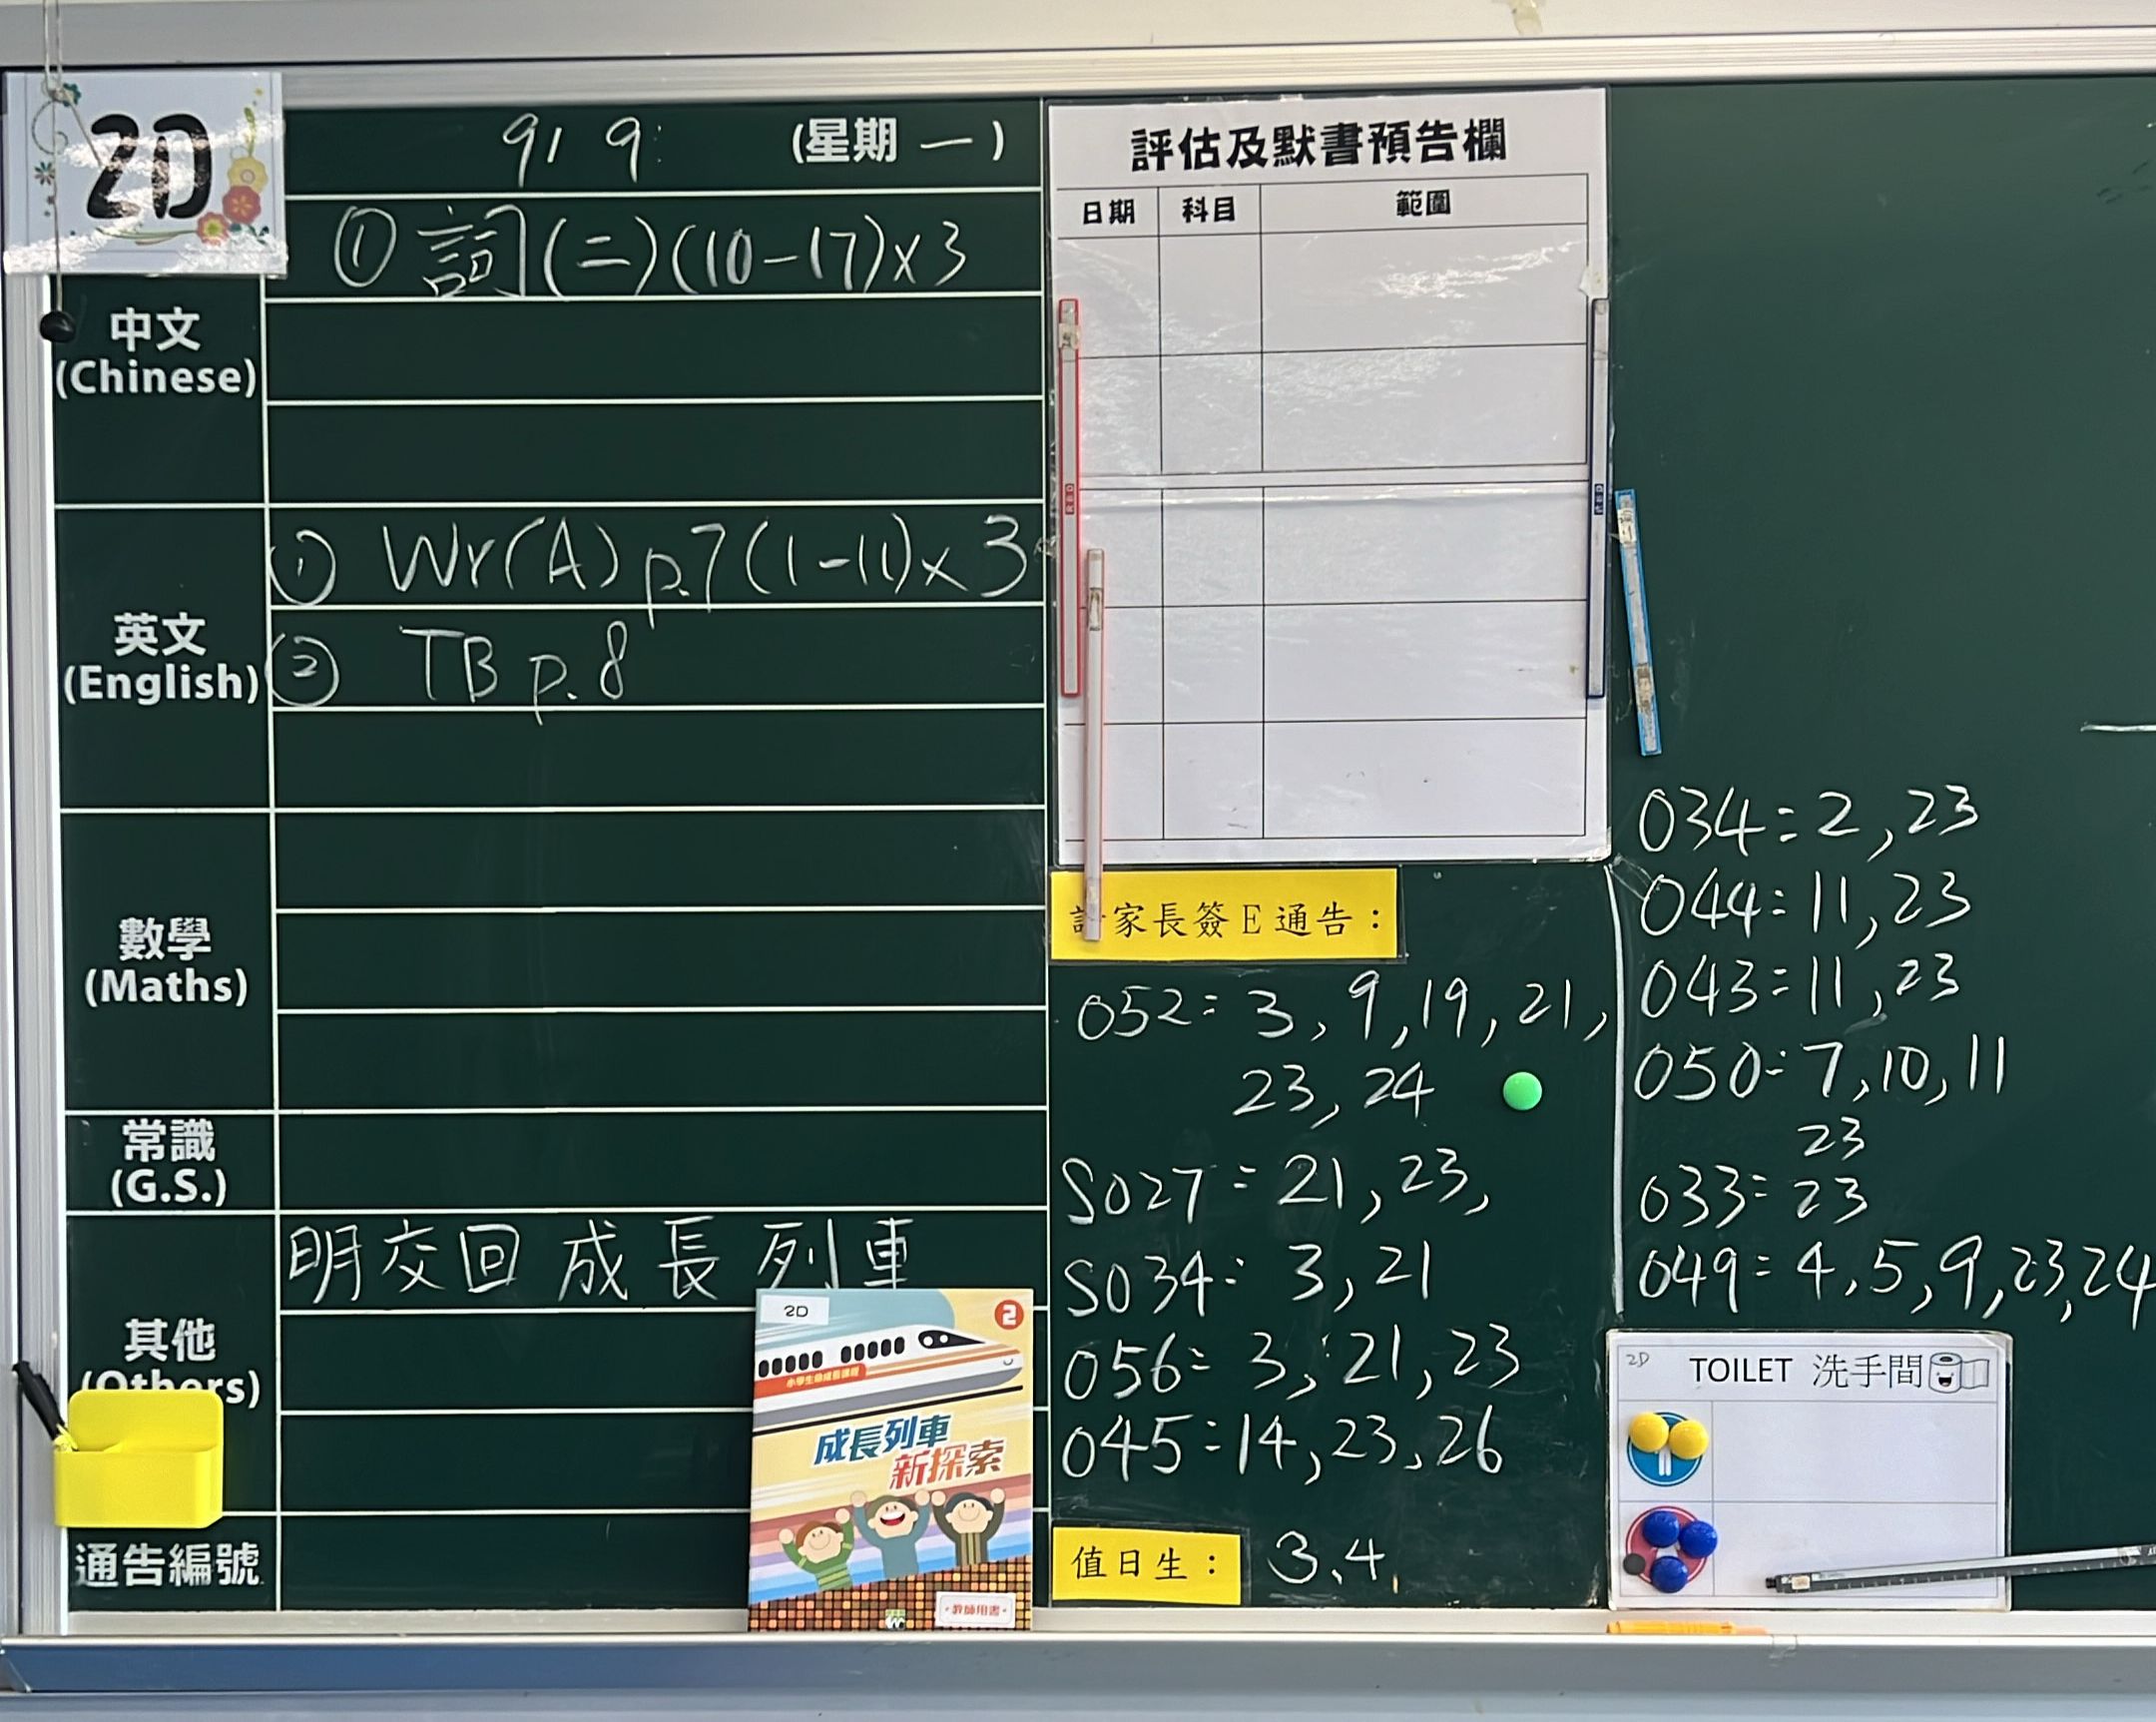 2D
9/9 (星期一)
① 詞(二)(10-17)x3
中文
(Chinese)
① Wr(A) p.7(1-11)x3
② TB p.8
英文
(English)
數學
(Maths)
常識
(G.S.)
明交回成長列車
其他
(Others)
通告編號
2D
2
成長列車
新探索
教師用書
評估及默書預告欄
日期 科目 範圍
家長簽E通告：
052: 3, 9, 19, 21,
23, 24
S027: 21, 23,
S034: 3, 21
056: 3, 21, 23
045: 14, 23, 26
值日生： 3, 4
034: 2, 23
044: 11, 23
043: 11, 23
050: 7, 10, 11
23
033: 23
049: 4, 5, 9, 23, 24
2D TOILET 洗手間